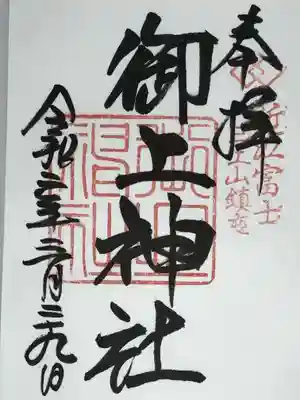 奉拝
近江富士
三上山鎮座
御上神社
令和二年二月二十九日